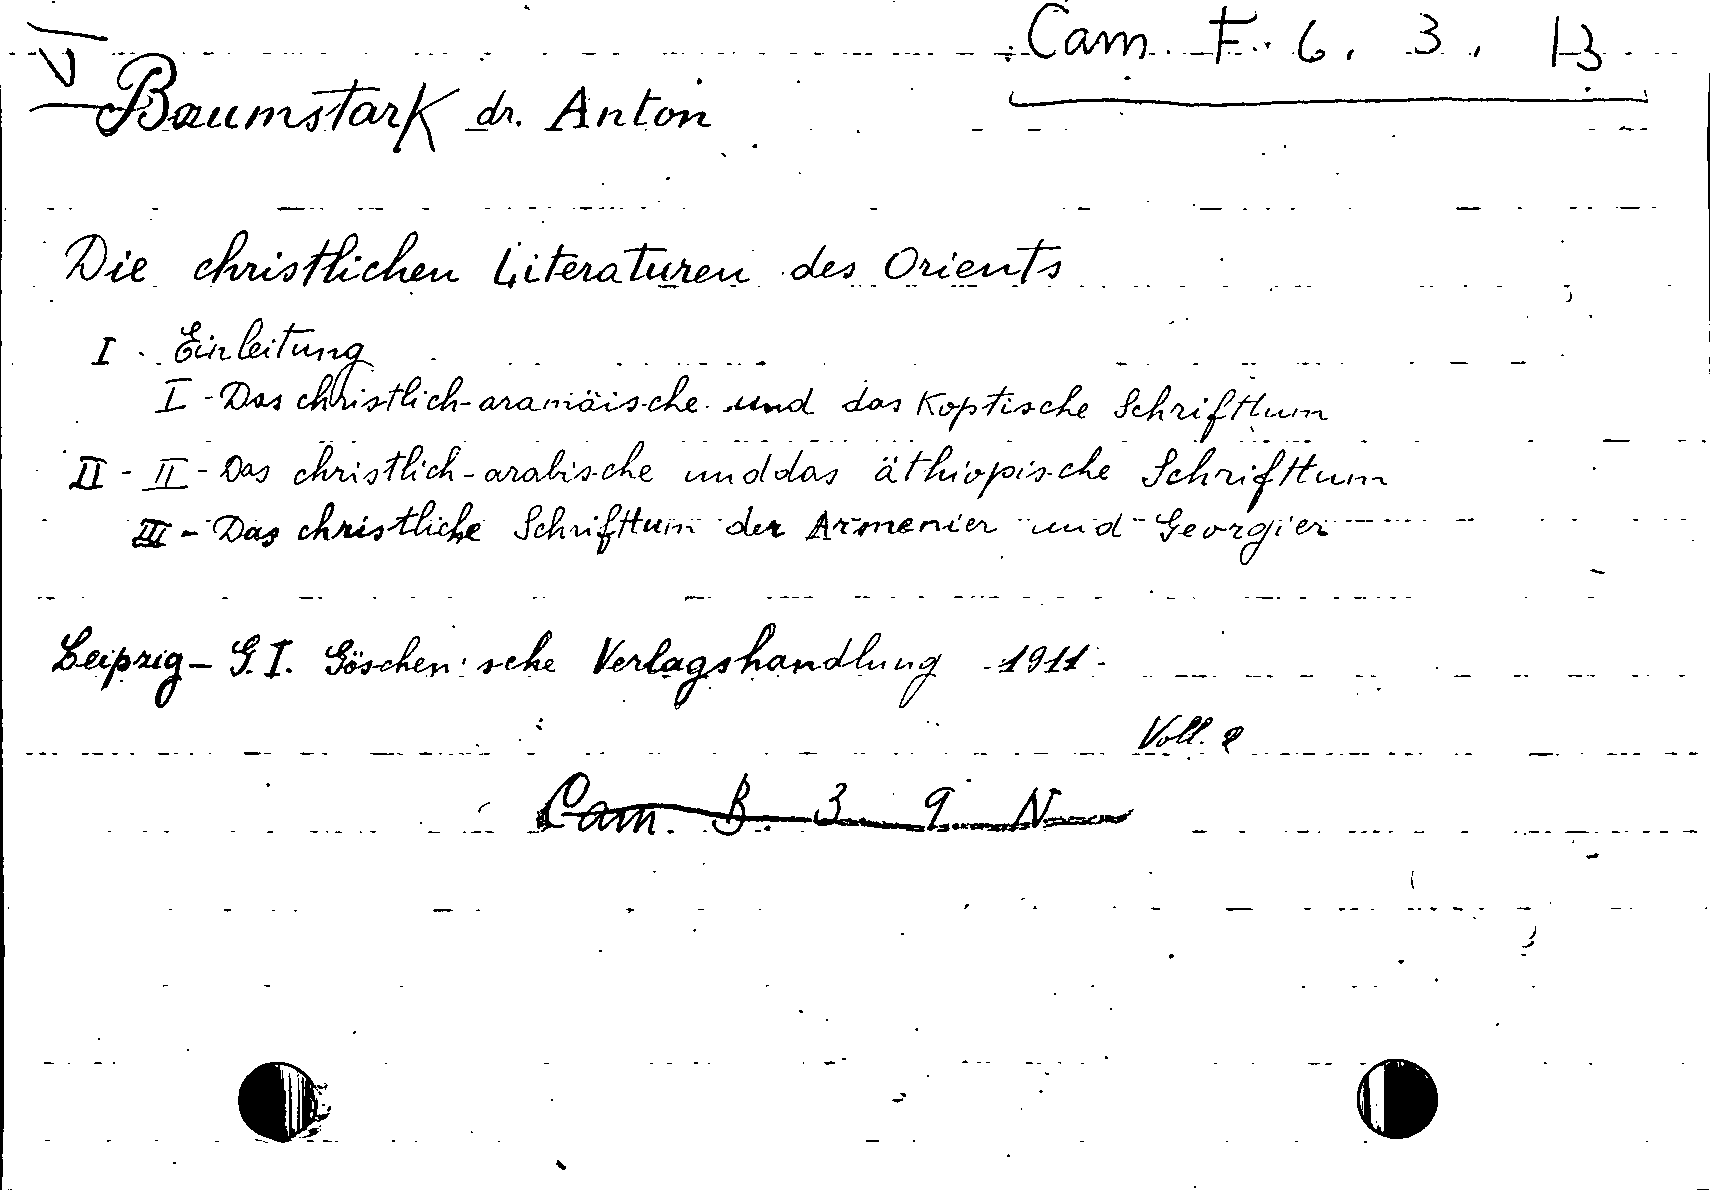 Cam. F. 6. 3. 13
V
Baumstark dr. Anton
Die christlichen Literaturen des Orients
I - Einleitung
I - Das christlich-aramäische und das Koptische Schrifttum
II - II - Das christlich-arabische und das äthiopische Schrifttum
III - Das christliche Schrifttum der Armenier und Georgier
Leipzig - G.I. Göschen'sche Verlagshandlung - 1911 -
Voll. 2
Cam. B. 3 9 N